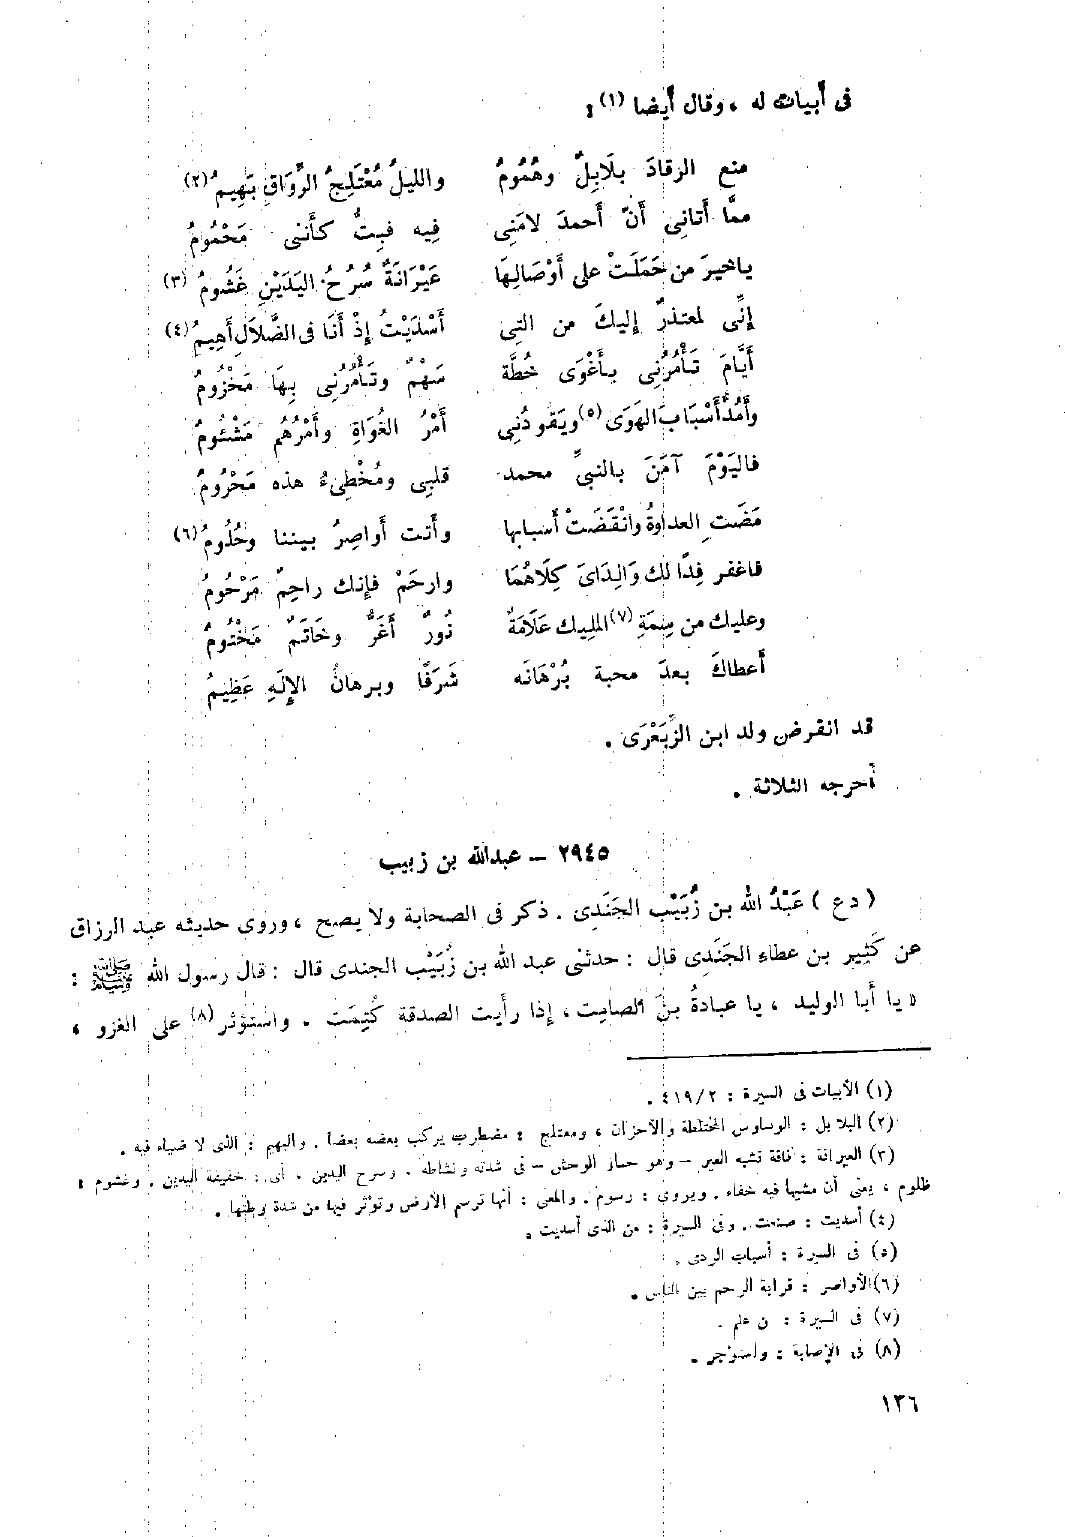 فى أبيات له ، وقال أيضا (١) :
منع الرقادَ بلَابِلٌ وهُمُومُ والليلُ مُعْتَلِجُ الرِّوَاقِ بَهِيمُ (٢)
ممَّا أَتانِى أَنّ أَحمدَ لامَنِى فِيه فبِتُّ كأَننى مَحْمُومُ
ياخيرَ من حَمَلَتْ على أَوْصَالِهَا عَيْرَانَةٌ سُرُحُ اليَدَيْنِ غَشُومُ (٣)
إِنِّى لمعتذرٌ إِليكَ من التِى أَسْدَيْتُ إِذْ أَنَا فى الضَّلَالِ أَهِيمُ (٤)
أَيَّامَ تَأْمُرُنِى بأَغْوَى خُطَّة سَهْمٌ وتَأْمُرُنِى بِهَا مَخْزُومُ
وأَمُدُّ أَسْبَابَ الهَوَى (٥) ويَقودُنِى أَمْرُ الغُوَاةِ وأَمْرُهُم مَشْئُومُ
فاليَوْمَ آمَنَ بالنبىِّ محمد قلبِى ومُخْطِىءُ هذه مَحْرُومُ
مَضَتِ العداوةُ وانْقَضَتْ أَسبابها وأَنت أَواصِرُ بيننا وحُلُومُ (٦)
فاغفر فِدًا لك وَالِدَاىَ كِلَاهُمَا وارحَمْ فإنك راحِمٌ مَرْحُومُ
وعليك من سِمَةِ (٧) المليك عَلَامَةٌ نُورٌ أَغَرُّ وخَاتَمٌ مَخْتُومُ
أَعطاكَ بعدَ محبة بُرْهَانَه شَرَفًا وبرهانُ الإِلَهِ عَظِيمُ
قد انقرض ولد ابن الزِّبَعْرَى .
أَخرجه الثلاثة .
٢٩٤٥ – عبدالله بن زبيب
( دع ) عَبْدُ الله بن زُبَيْب الجَنَدِى . ذكر فى الصحابة ولا يصح ، وروى حديثه عبد الرزاق
عن كَثِير بن عطاءِ الجَنَدِى قال : حدثنى عبد الله بن زُبَيْب الجندى قال : قال رسول الله ﷺ :
« يا أَبا الوليد ، يا عبادةُ بنَ الصامِت ، إذا رأَيت الصدقة كُتِمَت . واستؤثر (٨) على الغزو ،
(١) الأبيات فى السيرة : ٤١٩/٢ .
(٢) البلابل : الوساوس المختلطة والأحزان ، ومعتلج : مضطرب يركب بعضه بعضا . والبهيم : الذى لا ضياء فيه .
(٣) العيرانة : ناقة تشبه العير – وهو حمار الوحش – فى شدته ونشاطه . وسرح اليدين . أى : خفيفة اليدين . وغشوم :
ظلوم ، يعنى أن مشيها فيه خفاء . ويروى : رسوم . والمعنى : أنها ترسم الأرض وتؤثر فيها من شدة وطئها .
(٤) أسديت : صنعت . وفى السيرة : من الذى أسديت .
(٥) فى السيرة : أسباب الردى .
(٦) الأواصر : قرابة الرحم بين الناس .
(٧) فى السيرة : من علم .
(٨) فى الإصابة : واستؤجر .
١٣٦